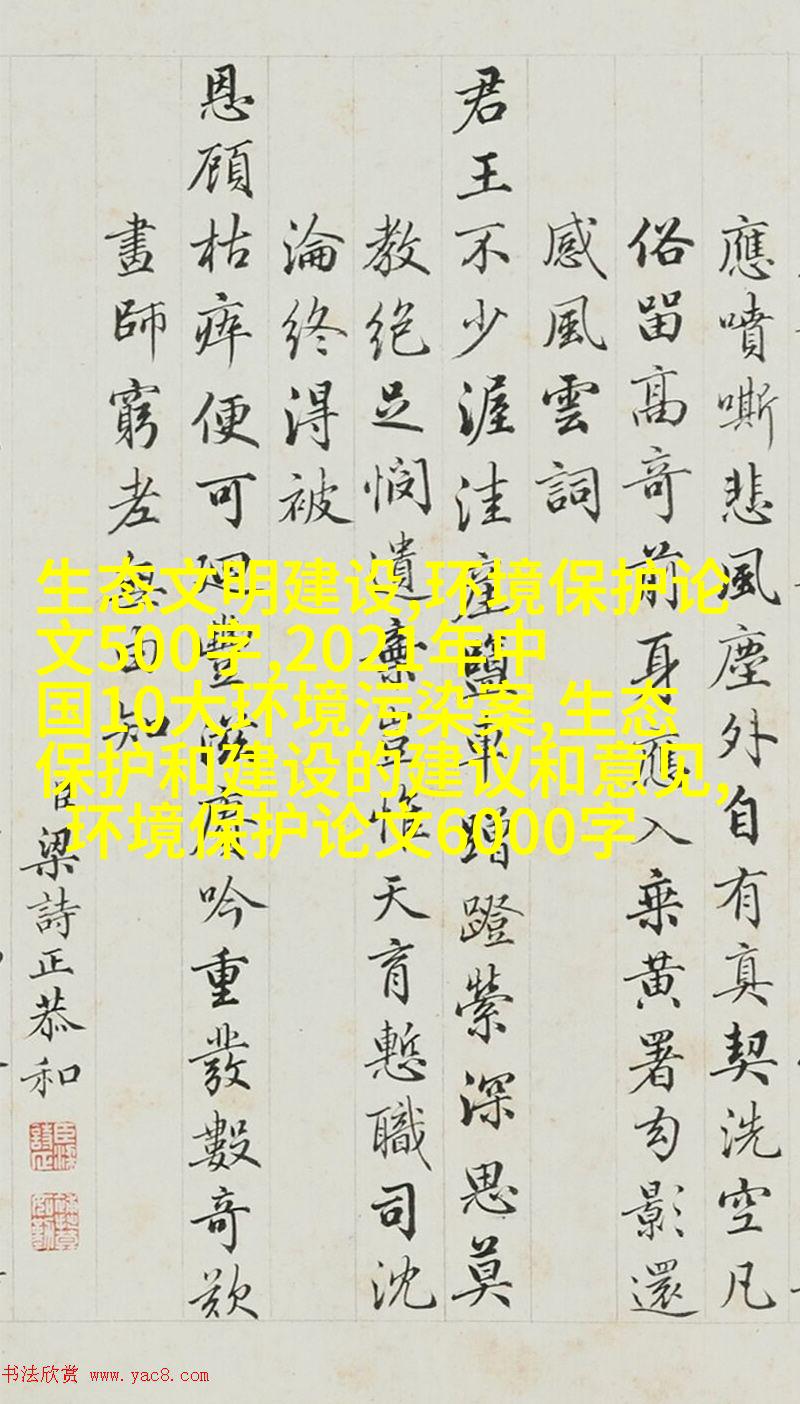 應噴嘶悲風塵外自有真契洗空凡
俗留高奇前身應入乗黃署勾影還
感風雲詞
君王不少渥洼產鹽車蹭蹬縈深思莫
教絶足憫遺棄豈惟天育慙職司沈
淪終得被
恩顧枯瘁便可迴豐滋廣吟重發數奇歎
畫師窮老無由知
臣梁詩正恭和
生态文明建设,环境保护论
文500字,2021年中
国10大环境污染案,生态
保护和建设的建议和意见,
环境保护论文6000字
书法欣赏 www.yac8.com